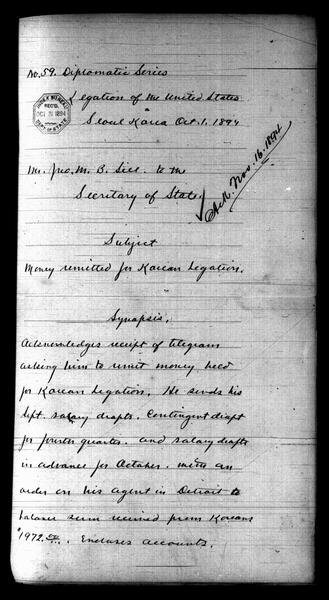 No. 59. Diplomatic Series
Legation of the United States
Seoul Korea Oct. 1. 1894
REC'D.
DEPT. OF STATE
Mr. Jno. M. B. Sill. to the
Secretary of State.
Ack. Nov. 16. 1894
Subject
Money remitted for Korean Legation.
Synopsis.
Acknowledges receipt of telegram
asking him to remit money need
for Korean Legation. He sends his
Sept. salary drafts. Contingent draft
for fourth quarter. and salary drafts
in advance for October. with an
order on his agent in Detroit to
balance sum received from Koreans
$1972. Encloses accounts.